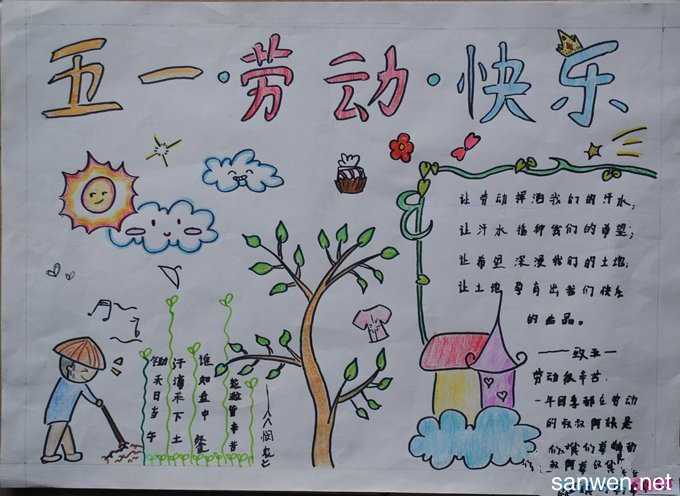 五一·劳动·快乐
让劳动挥洒我们的汗水;
让汗水播种我们的希望;
让希望深浸我们的土地;
让土地孕育出我们快乐
的作品。
——致五一
劳动很辛苦
一年四季都在劳动
的叔叔阿姨是
锄禾日当午
汗滴禾下土
谁知盘中餐
粒粒皆辛苦
——《悯农》
sanwen.net